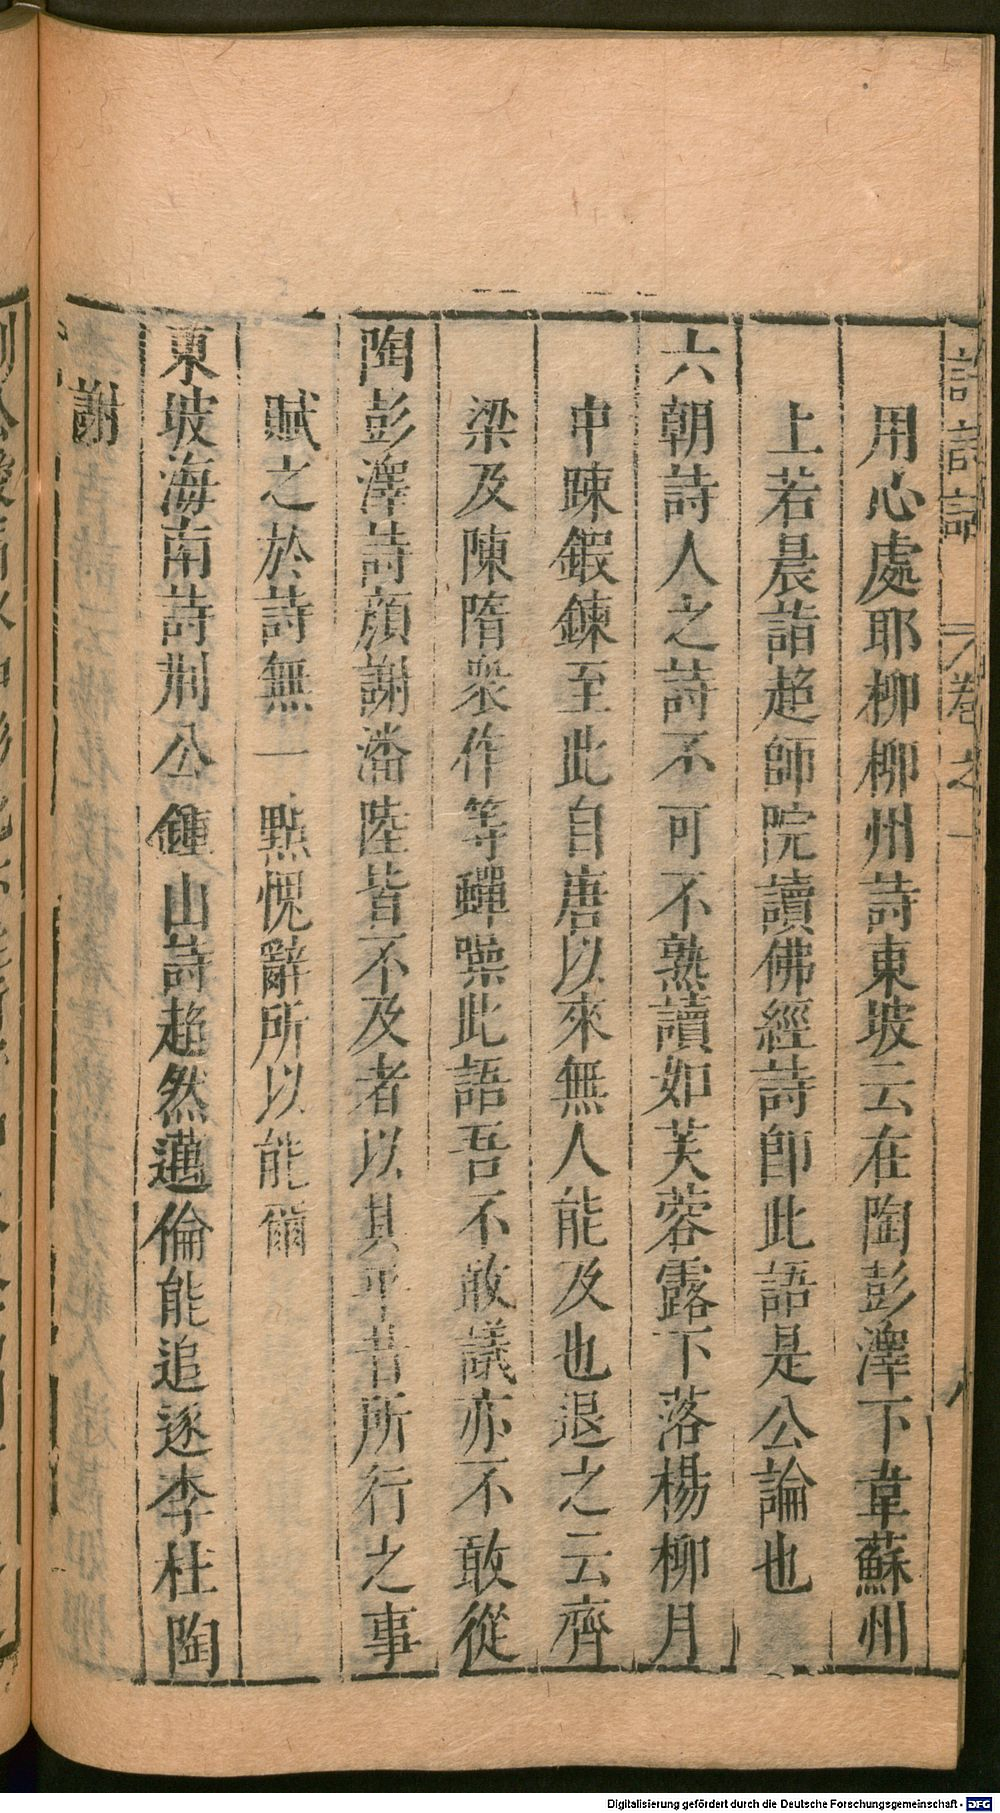 用心處耶柳柳州詩東坡云在陶彭澤下韋蘇州
上若晨詣超師院讀佛經詩卽此語是公論也
六朝詩人之詩不可不熟讀如芙蓉露下落楊柳月
中踈鍜鍊至此自唐以來無人能及也退之云齊
梁及陳隋衆作等蟬噪此語吾不敢議亦不敢從
陶彭澤詩顔謝潘陸皆不及者以其平昔所行之事
賦之於詩無一點愧辭所以能爾
東坡海南詩荆公鍾山詩超然邁倫能追逐李杜陶
謝
Digitalisierung gefördert durch die Deutsche Forschungsgemeinschaft - DFG